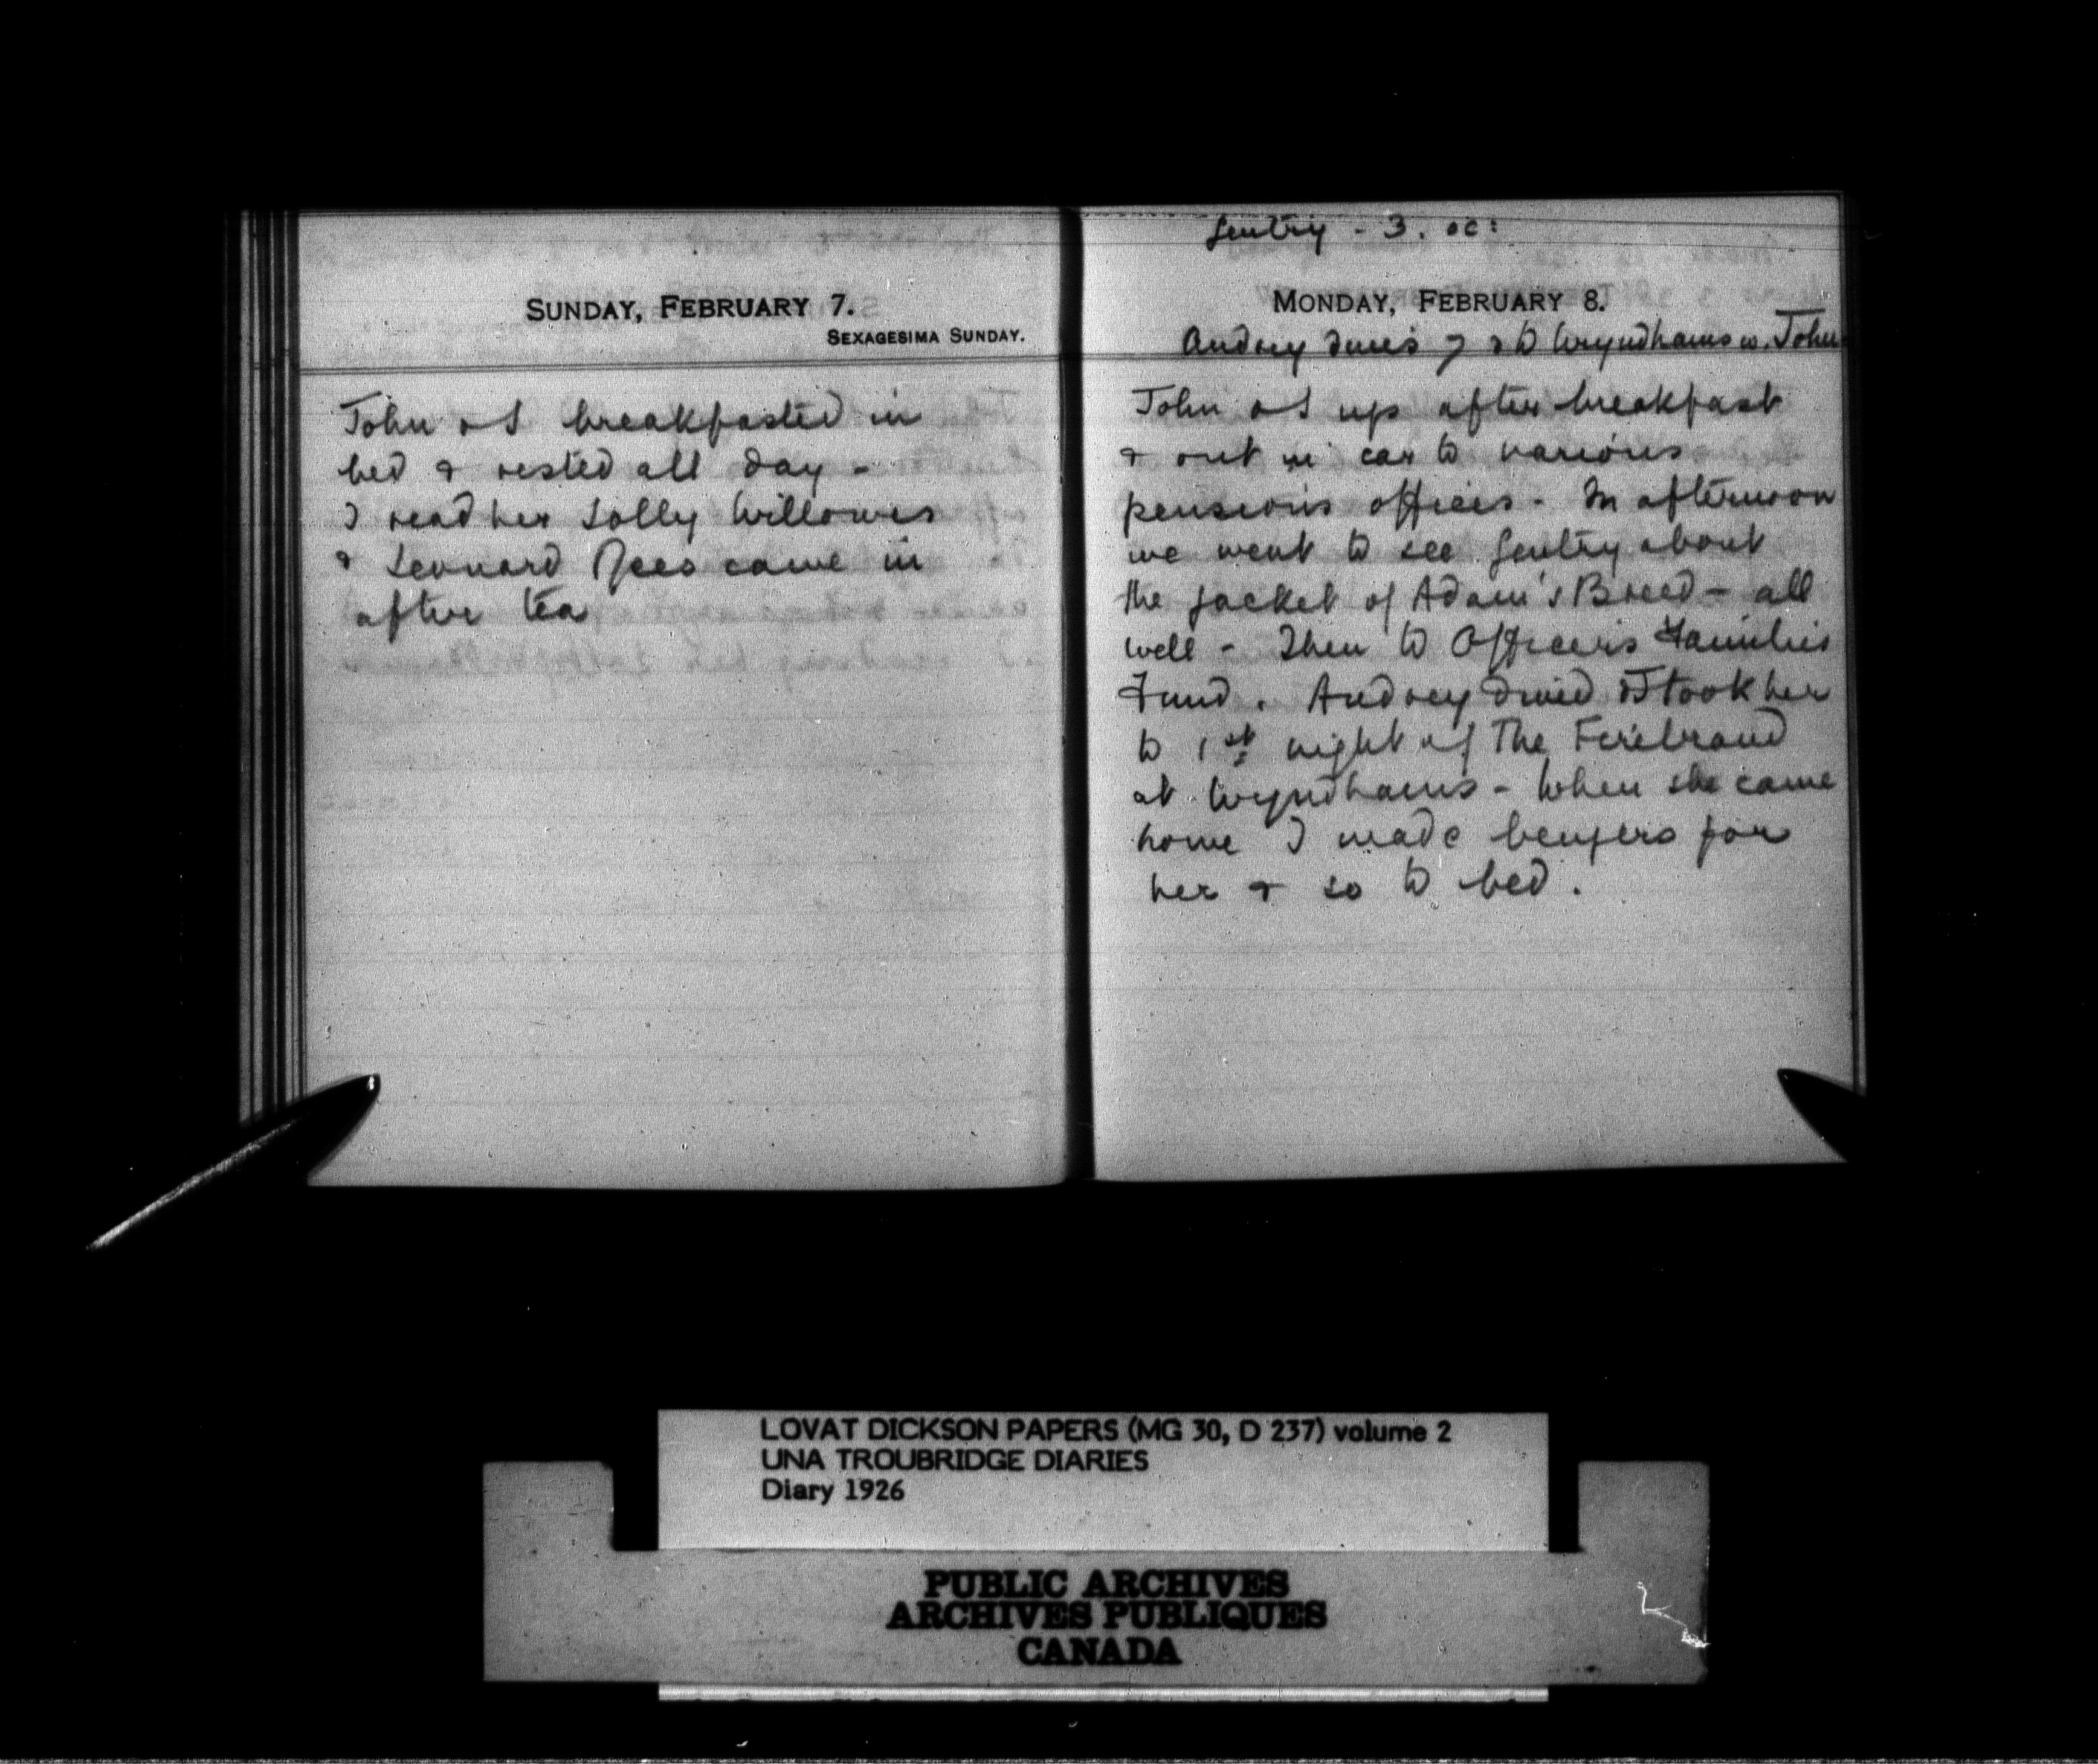 SUNDAY, FEBRUARY 7.
SEXAGESIMA SUNDAY.
John & I breakfasted in
bed & rested all day -
I read her Lolly Willowes
& Leonard Rees came in
after tea
Gentry - 3. oc:
MONDAY, FEBRUARY 8.
Audrey dines 7 & to Wyndhams w. John
John & I up after breakfast
& out in car to various
pensions offices - In afternoon
we went to see Gentry about
the jacket of Adam's Breed - all
well - Then to Officers Families
Fund. Audrey dined & J took her
to 1st night of The Firebrand
at Wyndhams - When she came
home I made bengers for
her & so to bed.
LOVAT DICKSON PAPERS (MG 30, D 237) volume 2
UNA TROUBRIDGE DIARIES
Diary 1926
PUBLIC ARCHIVES
ARCHIVES PUBLIQUES
CANADA